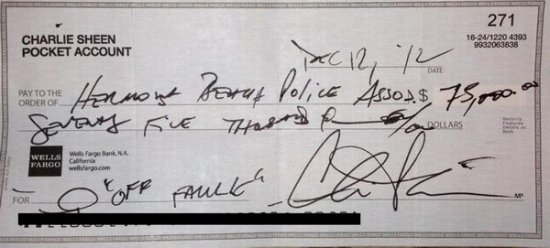 271
CHARLIE SHEEN
POCKET ACCOUNT
16-24/1220 4393
9932063838
DEC 12, '12
DATE
PAY TO THE ORDER OF HERMOSA BEACH POLICE ASSOC. $ 75,000.00
SEVENTY FIVE THOUSAND DOLLARS
Security Features Details on Back.
WELLS FARGO
Wells Fargo Bank, N.A.
California
wellsfargo.com
FOR "OFF FAULK"
MP